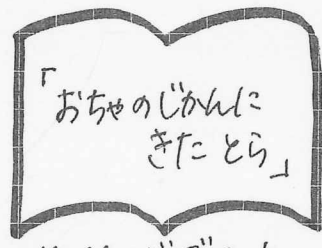 「おちゃのじかんに
きた とら」